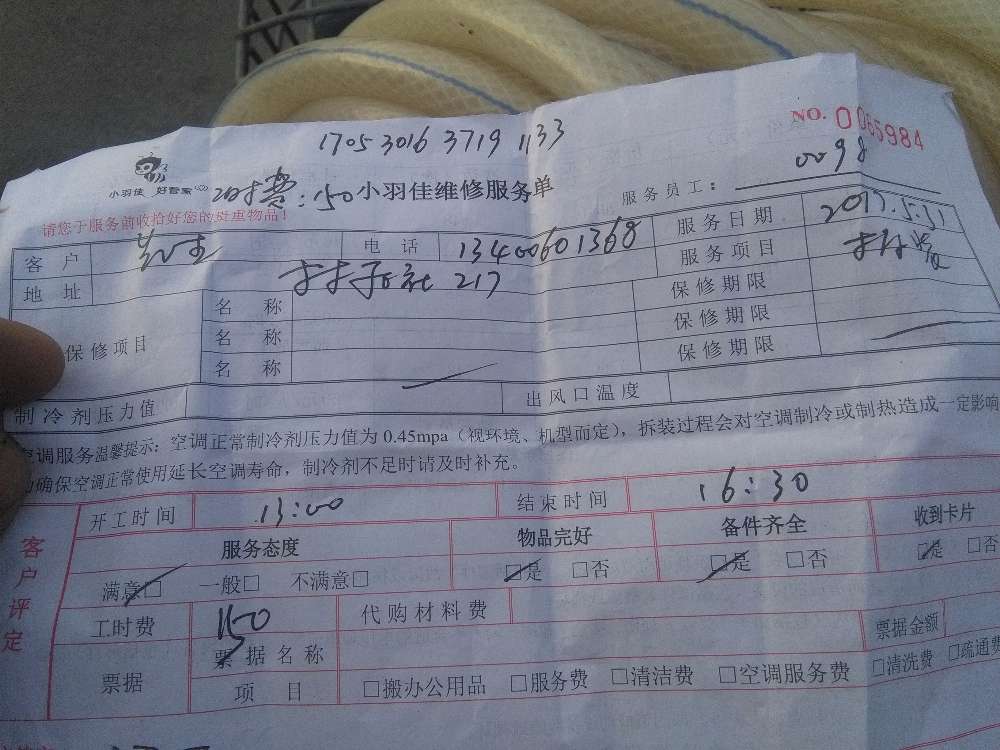 NO. 0065984
1705 3016 3719 1133
小羽佳 好管家
时费：150 小羽佳维修服务单
服务员工： 0098
请您于服务前收拾好您的贵重物品！
客户 电话 13400601368 服务日期 2017.5.31
地址 217 服务项目
保修项目 名称 保修期限
名称 保修期限
名称 保修期限
制冷剂压力值 出风口温度
空调服务温馨提示：空调正常制冷剂压力值为0.45mpa（视环境、机型而定），拆装过程会对空调制冷或制热造成一定影响
为确保空调正常使用延长空调寿命，制冷剂不足时请及时补充。
客户评定
开工时间 13:00 结束时间 16:30
服务态度 物品完好 备件齐全 收到卡片
满意□ 一般□ 不满意□ □是 □否 □是 □否 □是 □否
工时费 150 代购材料费
票据 票据名称 票据金额
项目 □搬办公用品 □服务费 □清洁费 □空调服务费 □清洗费 □疏通费